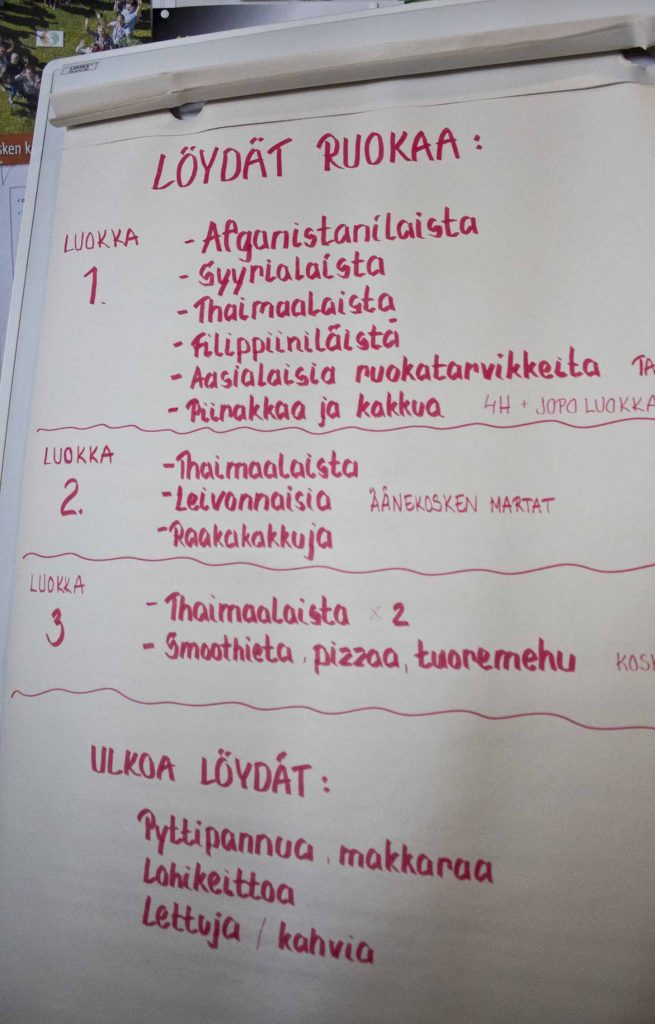 sken k
LÖYDÄT RUOKAA :
LUOKKA 1.
- Afganistanilaista
- Syyrialaista
- Thaimaalaista
- Filippiiniläistä
- Aasialaisia ruokatarvikkeita TA
- Piinakkaa ja kakkua 4H + JOPO LUOKKA
LUOKKA 2.
- Thaimaalaista
- Leivonnaisia ÄÄNEKOSKEN MARTAT
- Raakakakkuja
LUOKKA 3
- Thaimaalaista x 2
- Smoothieta, pizzaa, tuoremehu KOSK
ULKOA LÖYDÄT :
Pyttipannua, makkaraa
Lohikeittoa
Lettuja / kahvia